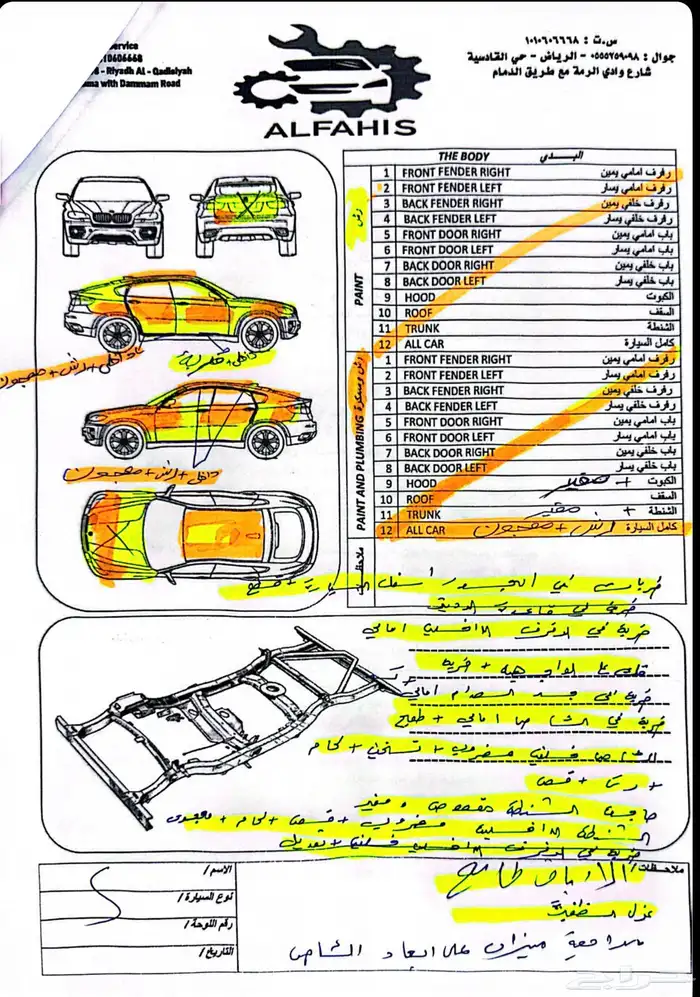 ervice
10606668
- Riyadh AL - Qadisiyah
ma with Dammam Road
ALFAHIS
س.ت : ١٠١٠٦٠٦٦٦٨
جوال : ٠٥٥٥٢٥٩٠٩٨ - الرياض - حي القادسية
شارع وادي الرمة مع طريق الدمام
THE BODY البـــدي
PAINT رش
1 FRONT FENDER RIGHT رفرف امامي يمين
2 FRONT FENDER LEFT رفرف امامي يسار
3 BACK FENDER RIGHT رفرف خلفي يمين
4 BACK FENDER LEFT رفرف خلفي يسار
5 FRONT DOOR RIGHT باب امامي يمين
6 FRONT DOOR LEFT باب امامي يسار
7 BACK DOOR RIGHT باب خلفي يمين
8 BACK DOOR LEFT باب خلفي يسار
9 HOOD الكبوت
10 ROOF السقف
11 TRUNK الشنطة
12 ALL CAR كامل السيارة
PAINT AND PLUMBING رش وسمكرة
1 FRONT FENDER RIGHT رفرف امامي يمين
2 FRONT FENDER LEFT رفرف امامي يسار
3 BACK FENDER RIGHT رفرف خلفي يمين
4 BACK FENDER LEFT رفرف خلفي يسار
5 FRONT DOOR RIGHT باب امامي يمين
6 FRONT DOOR LEFT باب امامي يسار
7 BACK DOOR RIGHT باب خلفي يمين
8 BACK DOOR LEFT باب خلفي يسار
9 HOOD الكبوت + مغير
10 ROOF السقف
11 TRUNK الشنطة + مغير
12 ALL CAR كامل السيارة رش + معجون
ملاحظات
داخلي + رش + معجون
داخلي + رش + معجون
ضربات في الجسور أسفل السيارة + قطع
ضربة في قاعدة الرديتر
ضربة في الرفرف الداخلي امامي
+ ضربة
ضربة في جسر الصدام امامي
ضربة في الشاصا امامي + طعاج
الشاصا خلفي مضروب + تسخين + لحام
+ رش + قص
حاجب الشنطة مقصوص ومغير
الشنطة الداخلية مضروب + قص + لحام + معجون
ضربة في الرفرف الداخلي خلفي + تعديل
الاسم /
نوع السيارة /
رقم اللوحة /
التاريخ /
ملاحظات /
الارباق طالع
عزل
مراجعة ميزان على ابعاد الشاص
حراج